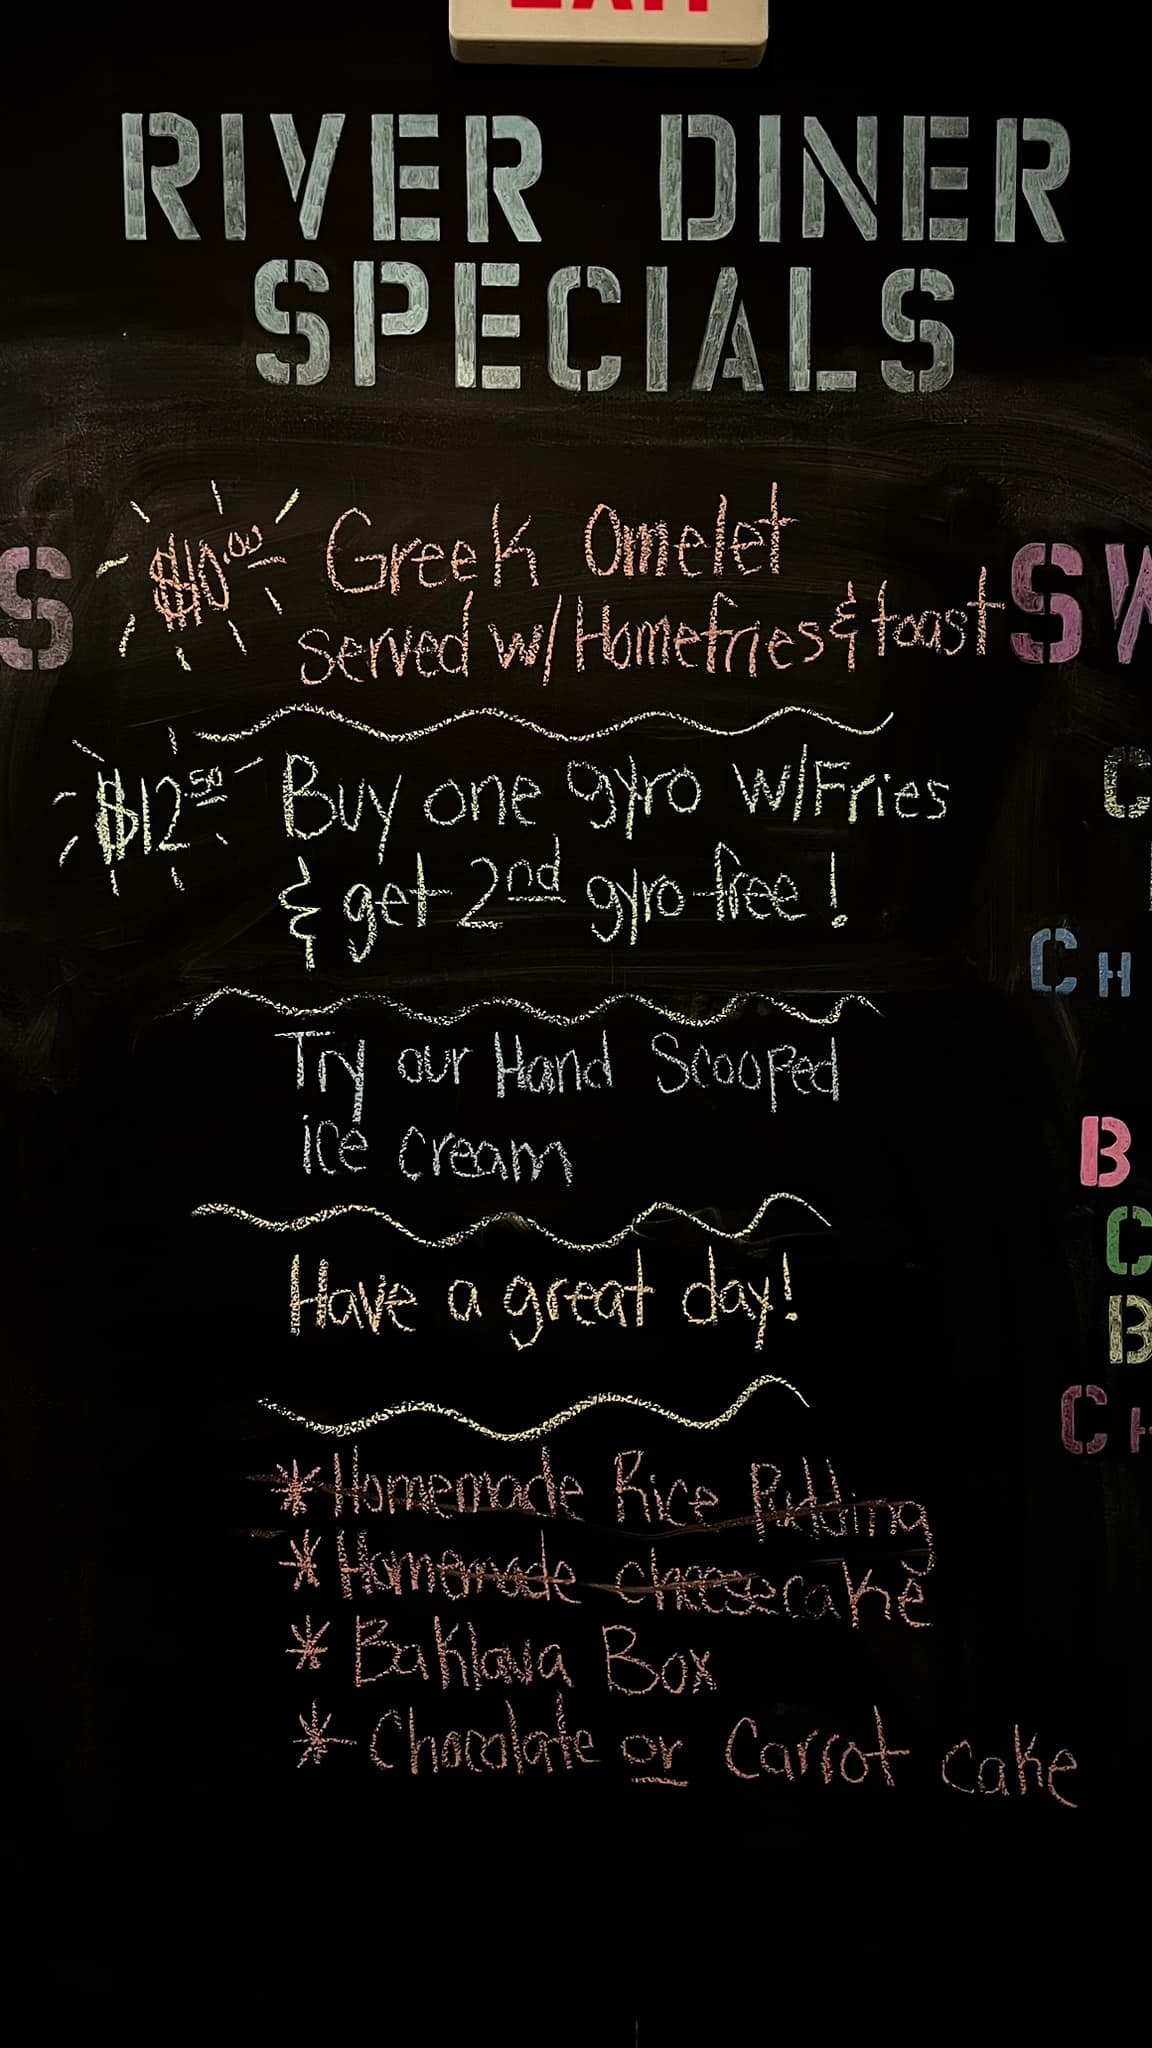 EXIT
RIVER DINER
SPECIALS
$10.00 Greek Omelet
served w/Homefries & toast
$12.50 Buy one gyro w/Fries
& get 2nd gyro free!
Try our Hand Scooped
ice cream
Have a great day!
* Homemade Rice Pudding
* Homemade cheesecake
* Baklava Box
* Chocolate or Carrot cake
S
SW
C
CH
B
C
B
CH